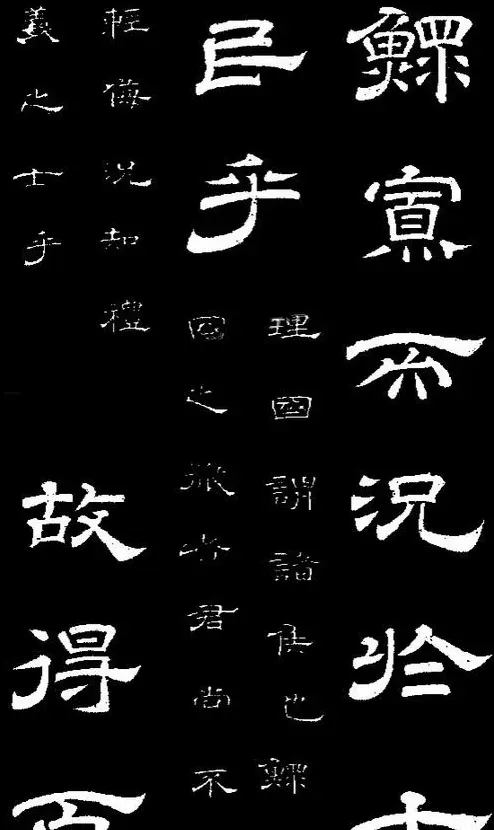 鰥寡而況於士
民乎
理國謂諸侯也鰥
國之微者君尚不
輕侮況知禮
義之士乎
故得百